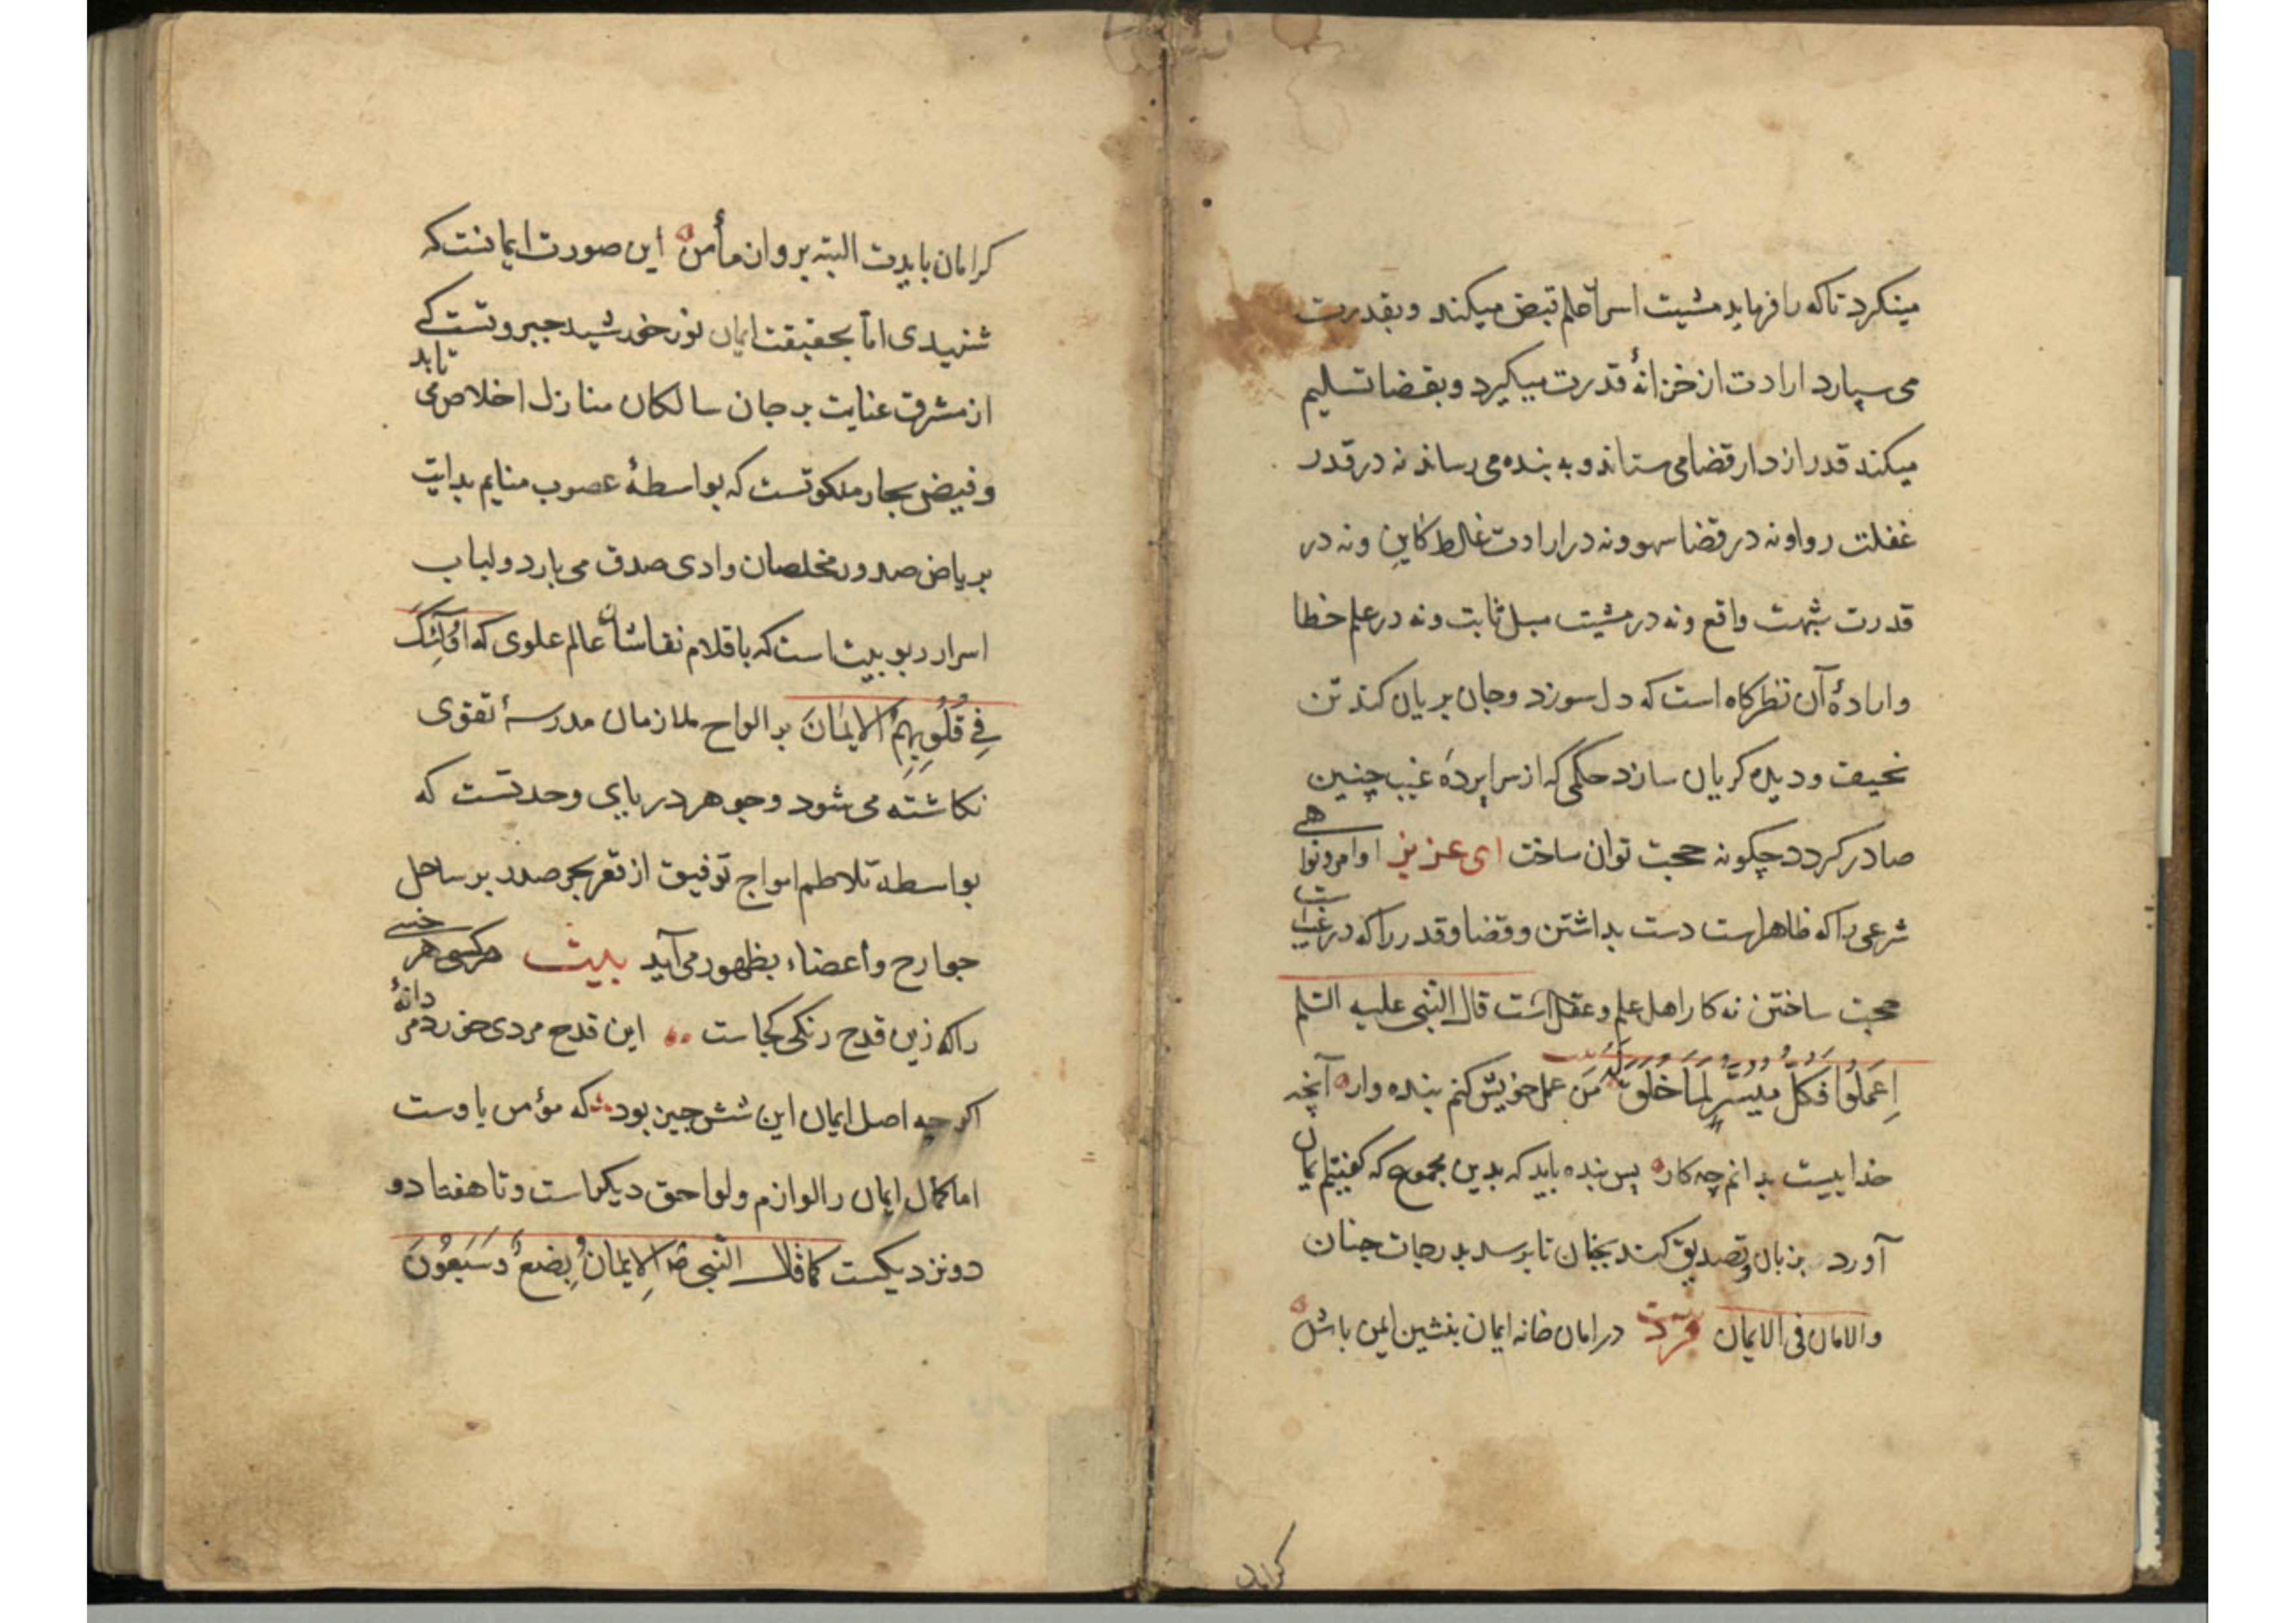 مینکرد تاکه را فرماید مشیت اسرار علم قبض میکند و بقدرت
می سپارد ارادت از خزانهٔ قدرت میکیرد و بقضا تسلیم
میکند قدر از دار قضا می ستاند و به بنده می رساند نه در قدر
غفلت روا و نه در قضا سهو و نه در ارادت غلط کاین و نه در
قدرت شبهت واقع و نه در مشیت میل ثابت و نه در علم خطا
و اراده آن نظرکاه است که دل سوزد و جان بریان کند تن
نحیف و دیده کریان سازد حکمی که از سراپردهٔ غیب چنین
صادر کردد چکونه حجت توان ساخت ای عزیز اوامر و نواهی
شرعی را که ظاهرست دست بداشتن و قضا و قدر را که در غیبست
حجت ساختن نه کار اهل علم و عقل است قال النبی علیه السلم
اِعمَلُوا فَکُلٌّ مُیَسَّرٌ لِمَا خُلِقَ لَهُ بیت مَن عمل خویش کنم بنده وار آنچه
خداییست بدانم چه کار پس بنده باید که بدین مجموع که کفتیم ایمان
آورد بزبان و تصدیق کند بجنان تا برسد بدرجات جنان
والامان فی الایمان فرد در امان خانه ایمان بنشین ایمن باش
کرامان
کرامان بایدت البته بر و ان مأمن این صورت ایمانست که
شنیدی اما بحقیقت ایمان نور خورشید جبروتست کے
از مشرق عنایت بر جان سالکان منازل اخلاص می تابد
و فیض بحار ملکوتست که بواسطهٔ بدایت
بریاض صدور مخلصان وادی صدق می بارد و لباب
اسرار ربوبیت است که باقلام نقاشان عالم علوی که اولٰئِکَ
فِی قُلُوبِهِمُ الاِیمَانَ بر الواح ملازمان مدرسهٔ تقوی
نکاشته می شود و جوهر دریای وحدتست که
بواسطه تلاطم امواج توفیق از قعر بحر صدر بر ساحل
جوارح و أعضاء بظهور می آید بیت هرکسی هر خسی
را که زین قدح رنکی کجاست این قدح مردی خورد مردانهٔ
اکر چه اصل ایمان این شش چیز بود که مؤمن باوست
اما کمال ایمان را لوازم و لواحق دیکرست و تا هفتاد و
دو نزدیکست کما قال النبی صَ اَلاِیمانُ بِضعٌ وَسَبعُونَ